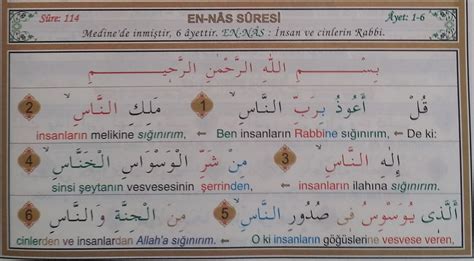 Sûre: 114 EN-NÂS SÛRESİ Âyet: 1-6
Medine'de inmiştir, 6 âyettir. EN-NÂS : İnsan ve cinlerin Rabbi.
بِسْمِ اللّٰهِ الرَّحْمٰنِ الرَّحٖيمِ
قُلْ اَعُوذُ بِرَبِّ النَّاسِۙ 1 مَلِكِ النَّاسِۙ 2
De ki: ⇐ Ben insanların Rabbine sığınırım, ⇐ insanların melikine sığınırım,
اِلٰهِ النَّاسِۙ 3 مِنْ شَرِّ الْوَسْوَاسِ الْخَنَّاسِۙ 4
insanların ilahına sığınırım. ⇐ sinsi şeytanın vesvesesinin şerrinden,
اَلَّذٖى يُوَسْوِسُ فٖى صُدُورِ النَّاسِۙ 5 مِنَ الْجِنَّةِ وَالنَّاسِ 6
O ki insanların göğüslerine vesvese veren, ⇐ cinlerden ve insanlardan Allah'a sığınırım.